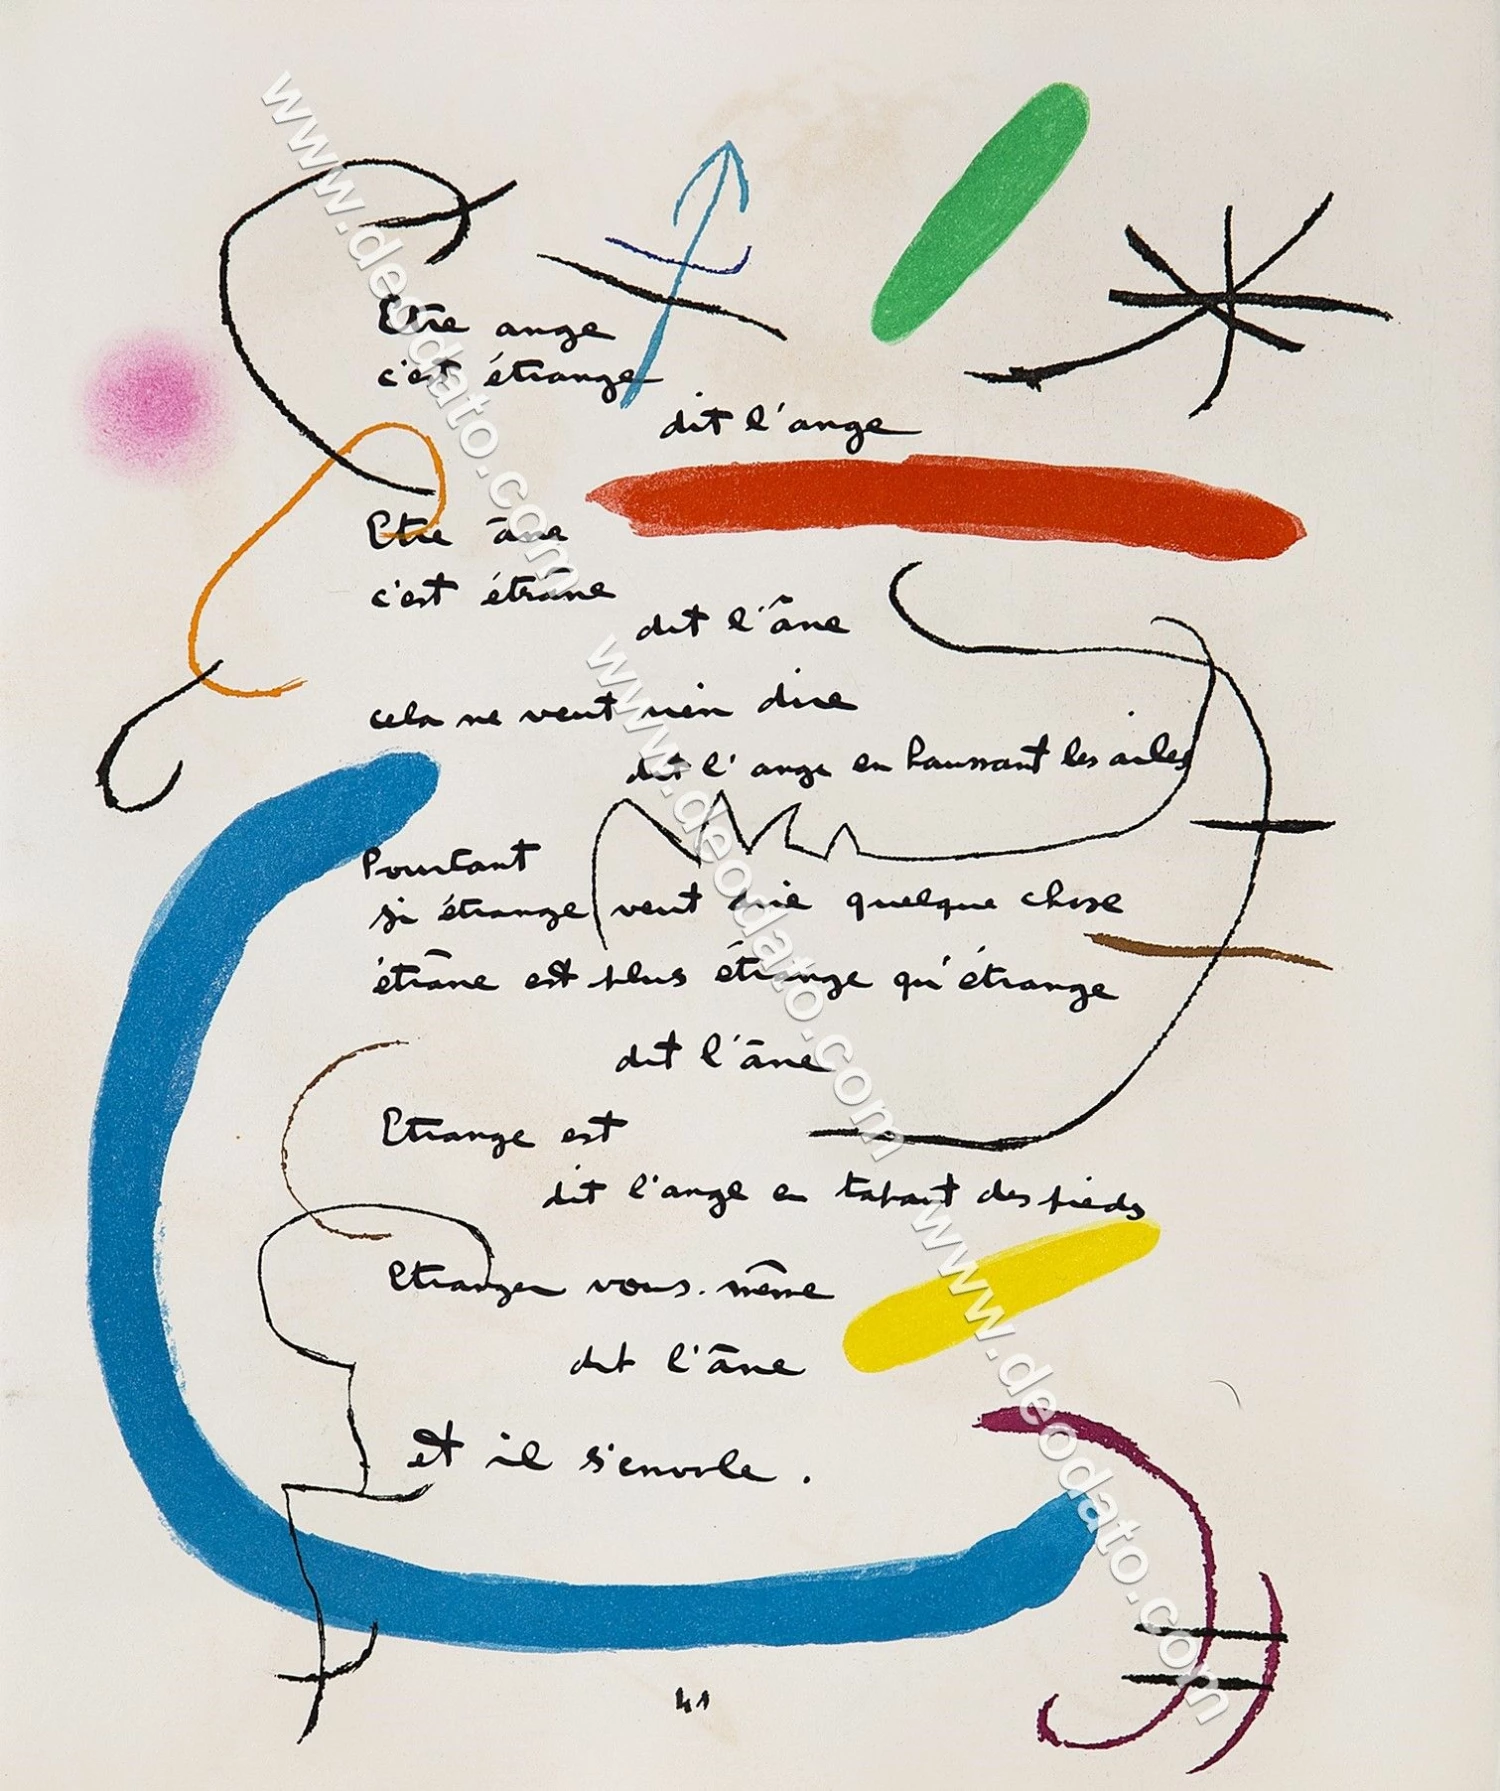 Etre ange
c'est étrange
dit l'ange
Etre âne
c'est étrâne
dit l'âne
cela ne veut rien dire
dit l'ange en haussant les ailes
Pourtant
si étrange veut dire quelque chose
étrâne est plus étrange qu'étrange
dit l'âne
Etrange est
dit l'ange en tapant des pieds
Etranger vous-même
dit l'âne
et il s'envole.
41
www.deodato.com
www.deodato.com
www.deodato.com